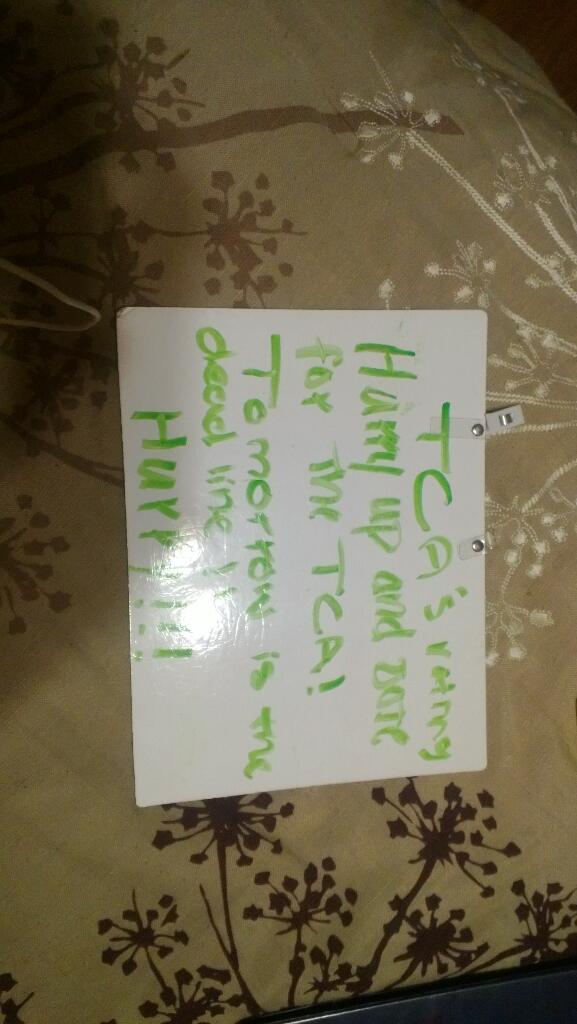 TCA's votiny
Hurry up and vote
for the TCA!
Tomorrow is the
dead line!!
Hurry!!!!